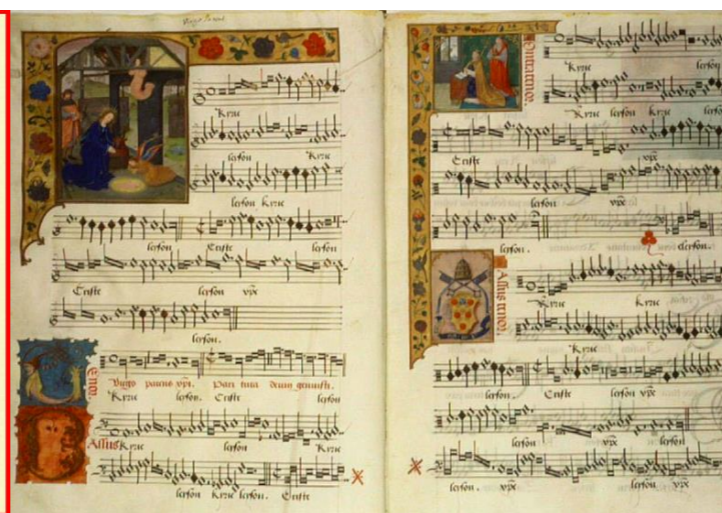 Virgo parens
Kyrie
leyson Kyrie
leyson Kyrie
leyson Criste leyson
Criste leyson xpe
leyson.
Tenor
Virgo parens xpi. Pari tura deum genuisti.
Kyrie leyson. Criste leyson
Bassus Kyrie leyson Kyrie
leyson Kyrie leyson. Criste
Contratenor
Kyrie leyson
Kyrie leyson Kyrie leyson
Criste leyson xpe
leyson xpe
leyson. eleyson.
Bassus tenor
Kyrie Kyrie
Kyrie
leyson. Criste leyson xpe
leyson xpe leyson
leyson. xpe leyson xpe